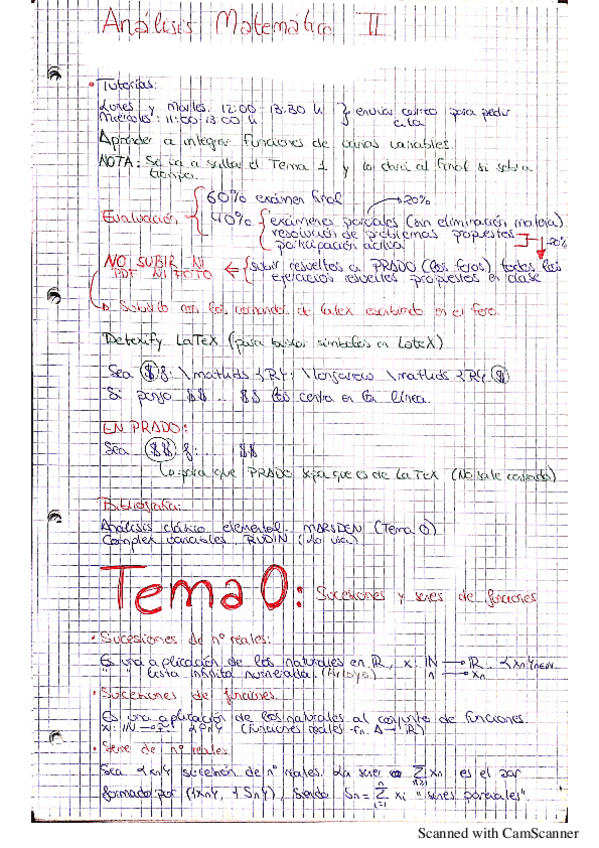 Análisis Matemático II
• Tutorías:
Lunes y Martes: 12:00-13:30 h } enviar correo para pedir
Miércoles: 11:00-13:00 h cita
Aprender a integrar funciones de varias variables.
NOTA: Se va a saltar el Tema 1 y lo dará al final si sobra
tiempo.
60% exámen final → 20%
Evaluación 40% { exámenes parciales (sin eliminación materia)
resolución de problemas propuestos
participación activa 20%
NO SUBIR NI ← { subir resueltos a PRADO (los foros) todos los
PDF NI FOTO ejercicios resueltos propuestos en clase
↳ Subirlo con los comandos de latex escribiendo en el foro.
Detexify LaTeX (para buscar símbolos en LaTeX)
Sea $ f: \mathds {R}: \longarrow \mathds {R} $
Si pongo $$ .. $$ los centra en la línea.
EN PRADO:
Sea $$ f: ... $$
↳ para que PRADO sepa que es de LaTeX (No sale centrado)
Bibliografía:
Análisis clásico elemental. MARSDEN (Tema 0)
Complex variables. RUDIN (No usa)
Tema 0: Sucesiones y series de funciones
• Sucesiones de nº reales:
Es una aplicación de los naturales en ℝ, x: ℕ → ℝ {xn}n∈ℕ
" " lista infinita numerada. n → xn
• Sucesiones de funciones.
Es una aplicación de los naturales al conjunto de funciones.
(funciones reales A → ℝ)
• Serie de nº reales.
Sea {xn} sucesión de nº reales. La serie Σ xn es el par
n≥1
formado por ({xn}, {Sn}), siendo Sn = Σ xi "sumas parciales".
Scanned with CamScanner